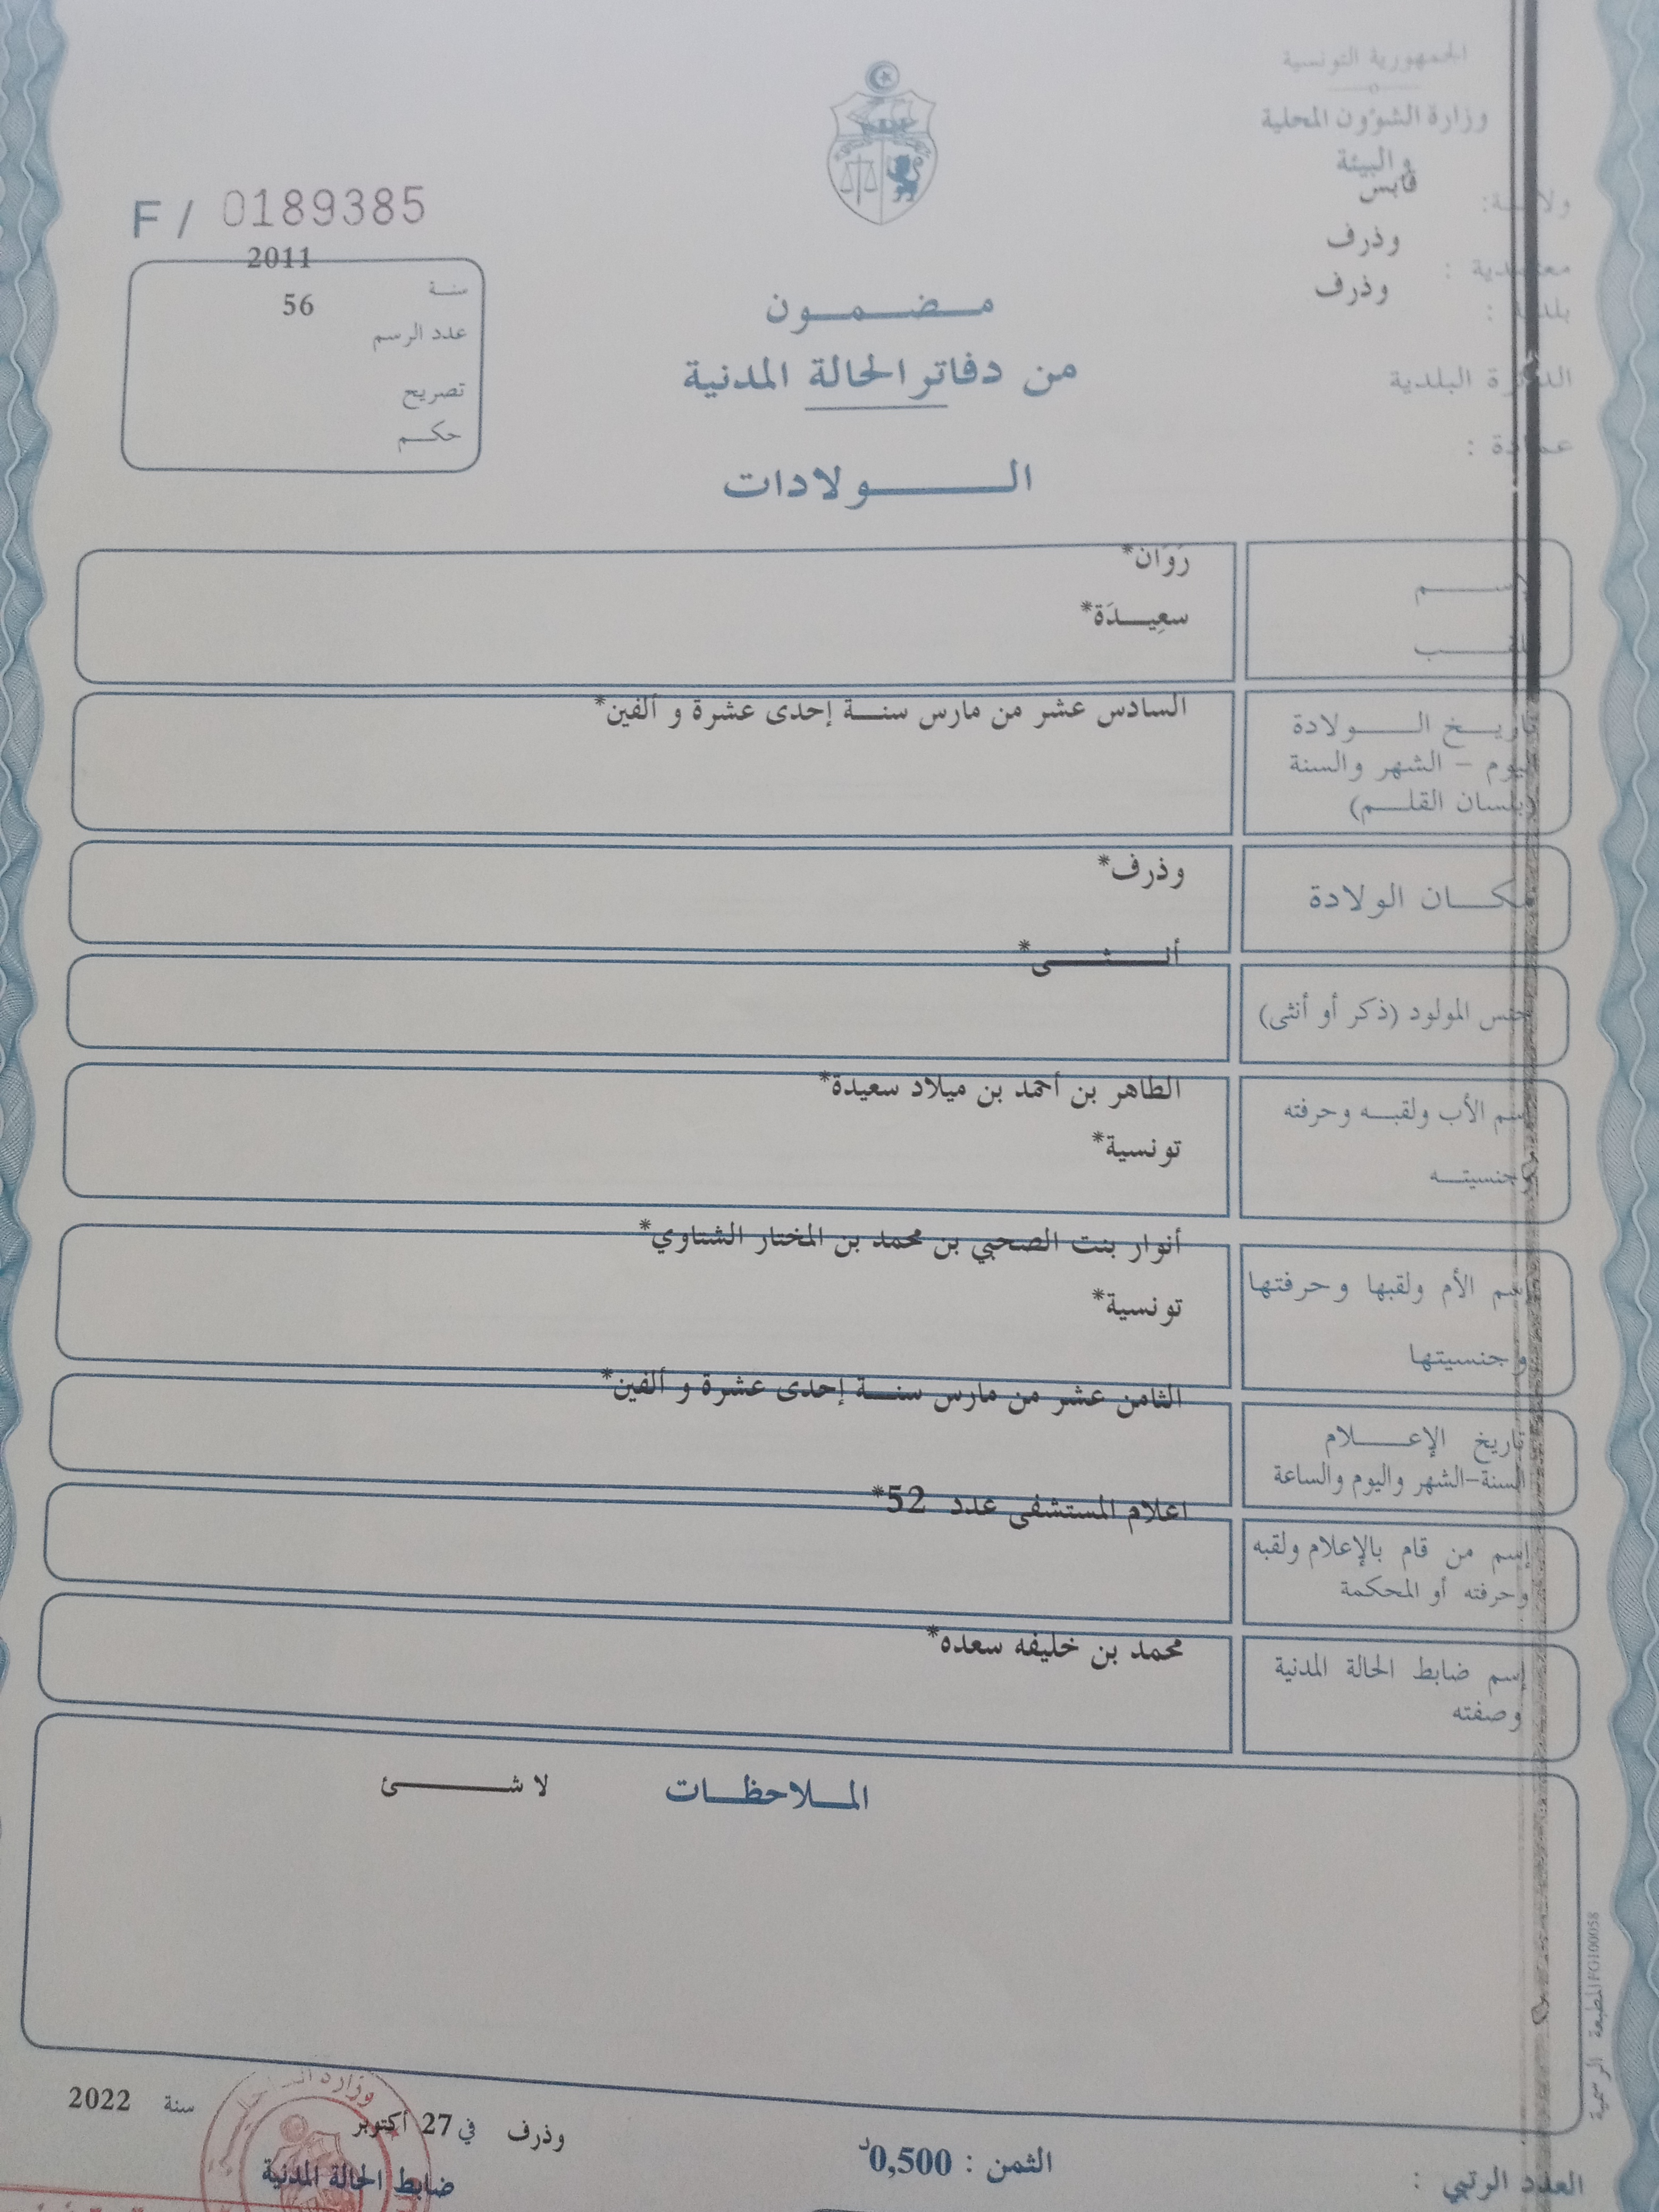 الجمهورية التونسية
وزارة الشؤون المحلية
والبيئة
ولاية: قابس
معتمدية : وذرف
بلدية : وذرف
الدائرة البلدية
عمادة :
F / 0189385
سنة 2011
عدد الرسم 56
تصريح
حكم
مضمون
من دفاتر الحالة المدنية
الولادات
الإسم رَوَان*
اللقب سعِيدَة*
تاريخ الولادة السادس عشر من مارس سنة إحدى عشرة و ألفين*
اليوم – الشهر والسنة
(بلسان القلم)
مكان الولادة وذرف*
جنس المولود (ذكر أو أنثى) أنثى*
إسم الأب ولقبه وحرفته الطاهر بن أحمد بن ميلاد سعيدة*
وجنسيته تونسية*
إسم الأم ولقبها وحرفتها أنوار بنت الصحبي بن محمد بن المختار الشتاوي*
وجنسيتها تونسية*
تاريخ الإعلام الثامن عشر من مارس سنة إحدى عشرة و ألفين*
السنة-الشهر واليوم والساعة
إسم من قام بالإعلام ولقبه اعلام المستشفى عدد 52*
وحرفته أو المحكمة
إسم ضابط الحالة المدنية محمد بن خليفه سعده*
وصفته
الملاحظات لا شئ
المطبعة الرسمية FG100058
وذرف في 27 أكتوبر سنة 2022
ضابط الحالة المدنية
الثمن : 0,500د
العدد الرتبي :